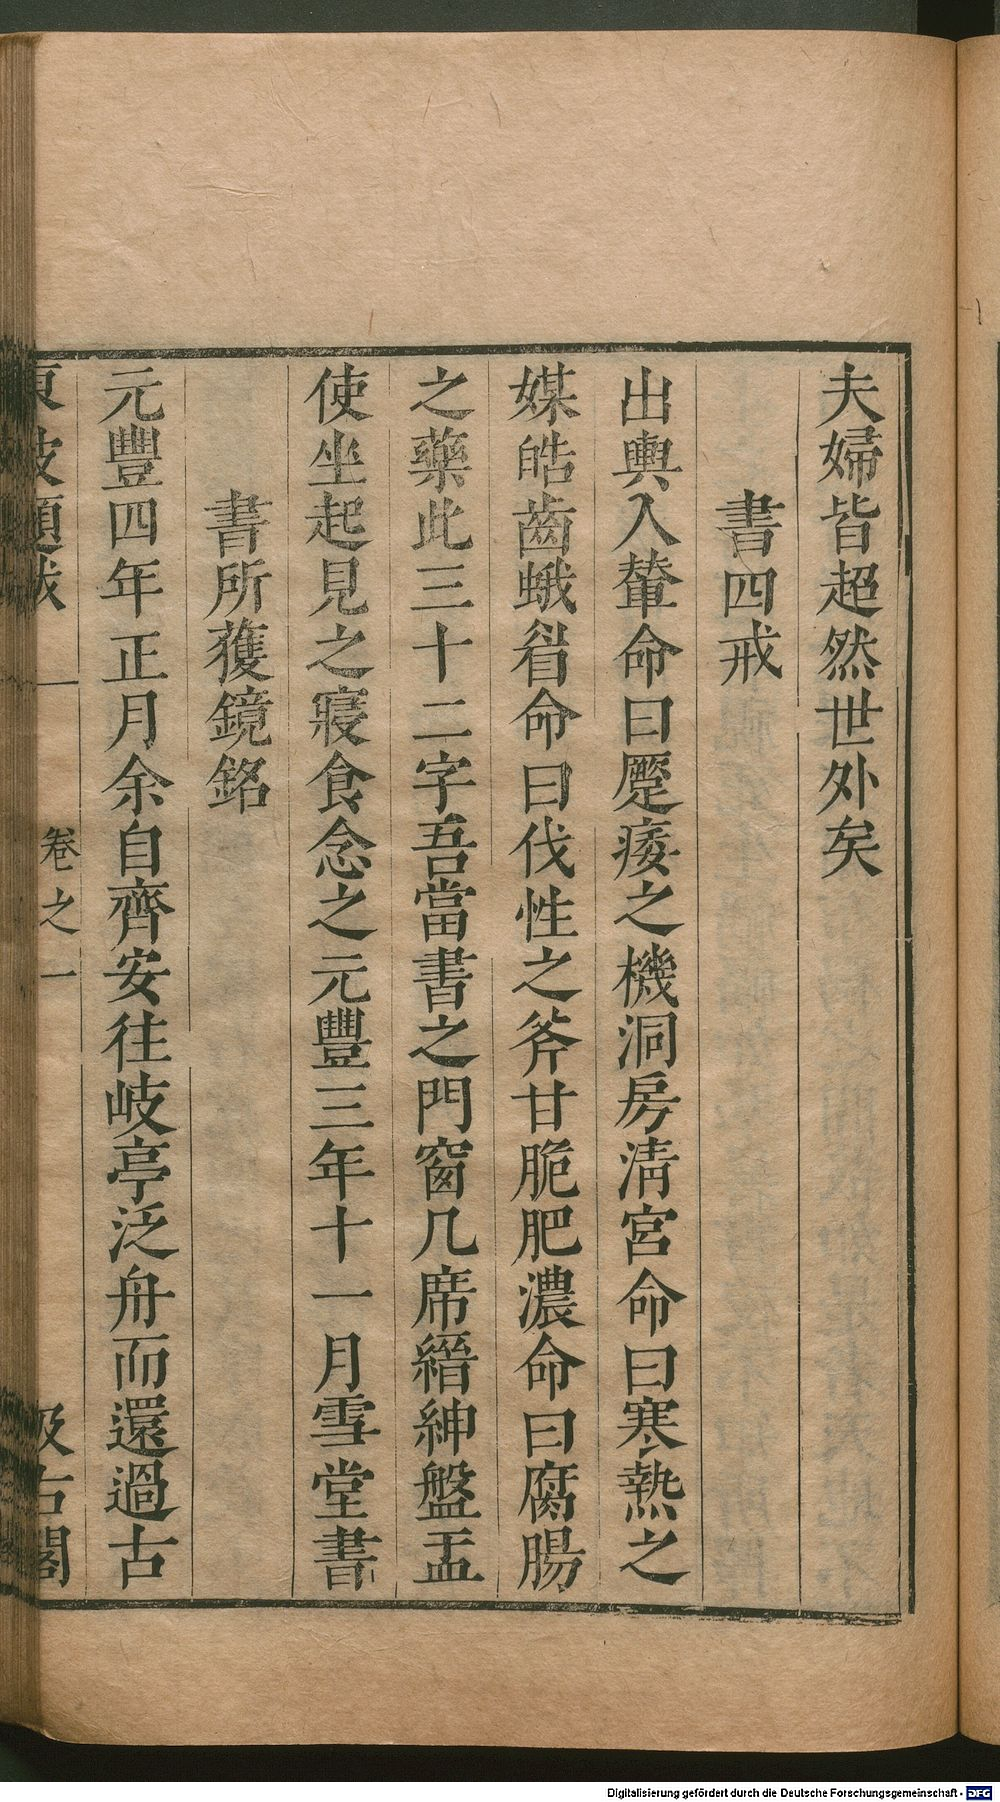 夫婦皆超然世外矣
書四戒
出輿入輦命曰蹷痿之機洞房清宮命曰寒熱之
媒皓齒蛾眉命曰伐性之斧甘脆肥濃命曰腐腸
之藥此三十二字吾當書之門窗几席縉紳盤盂
使坐起見之寢食念之元豐三年十一月雪堂書
書所獲鏡銘
元豐四年正月余自齊安往岐亭泛舟而還過古
東坡題跋 卷之一 汲古閣
Digitalisierung gefördert durch die Deutsche Forschungsgemeinschaft - DFG